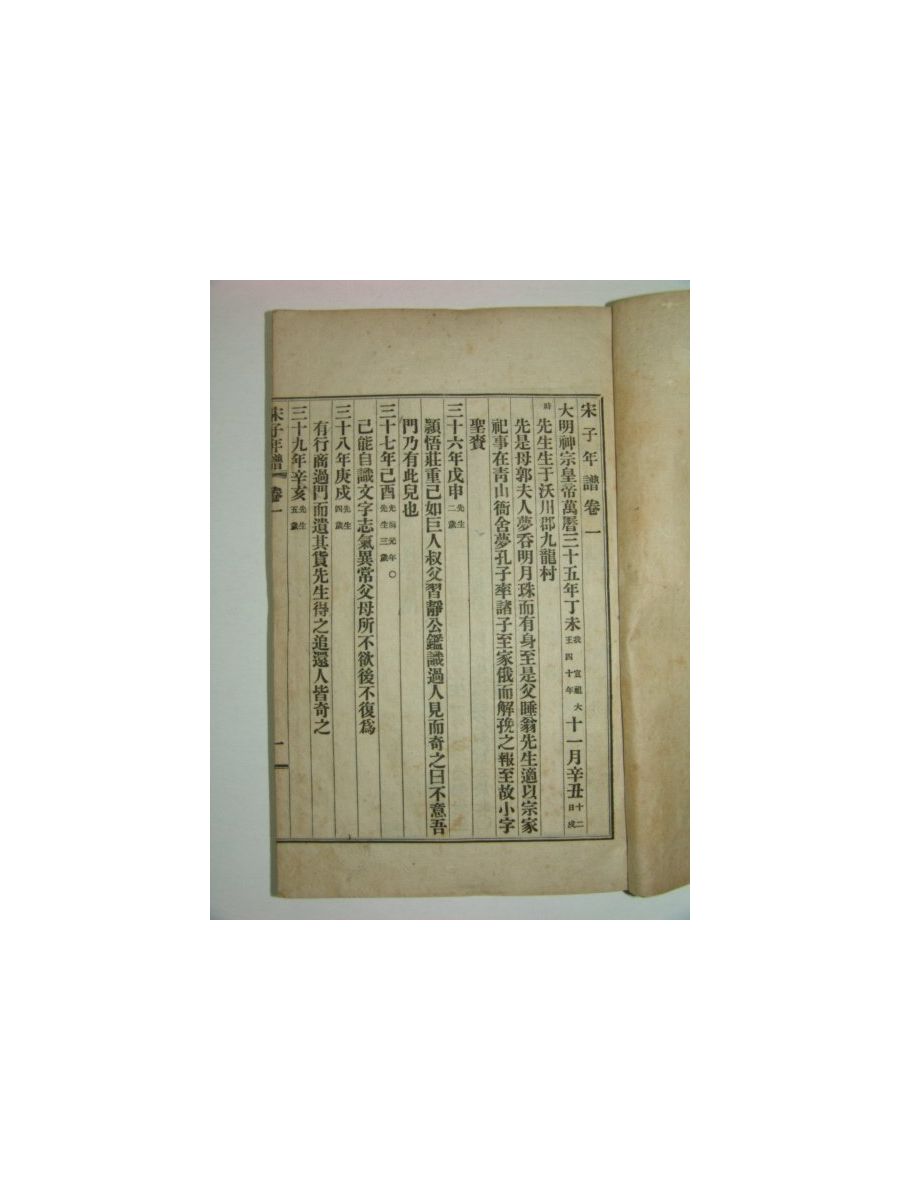 宋子年譜卷一
大明神宗皇帝萬曆三十五年丁未我宣祖大王四十年十一月辛丑十二日戌
時先生生于沃川郡九龍村
先是母郭夫人夢呑明月珠而有身至是父睡翁先生適以宗家
祀事在靑山衙舍夢孔子率諸子至家俄而解挽之報至故小字
聖賚
三十六年戊申先生二歲
穎悟莊重已如巨人叔父習靜公鑑識過人見而奇之曰不意吾
門乃有此兒也
三十七年己酉光海元年○先生三歲
已能自識文字志氣異常父母所不欲後不復爲
三十八年庚戌先生四歲
有行商過門而遺其貨先生得之追還人皆奇之
三十九年辛亥先生五歲
宋子年譜 卷一 一